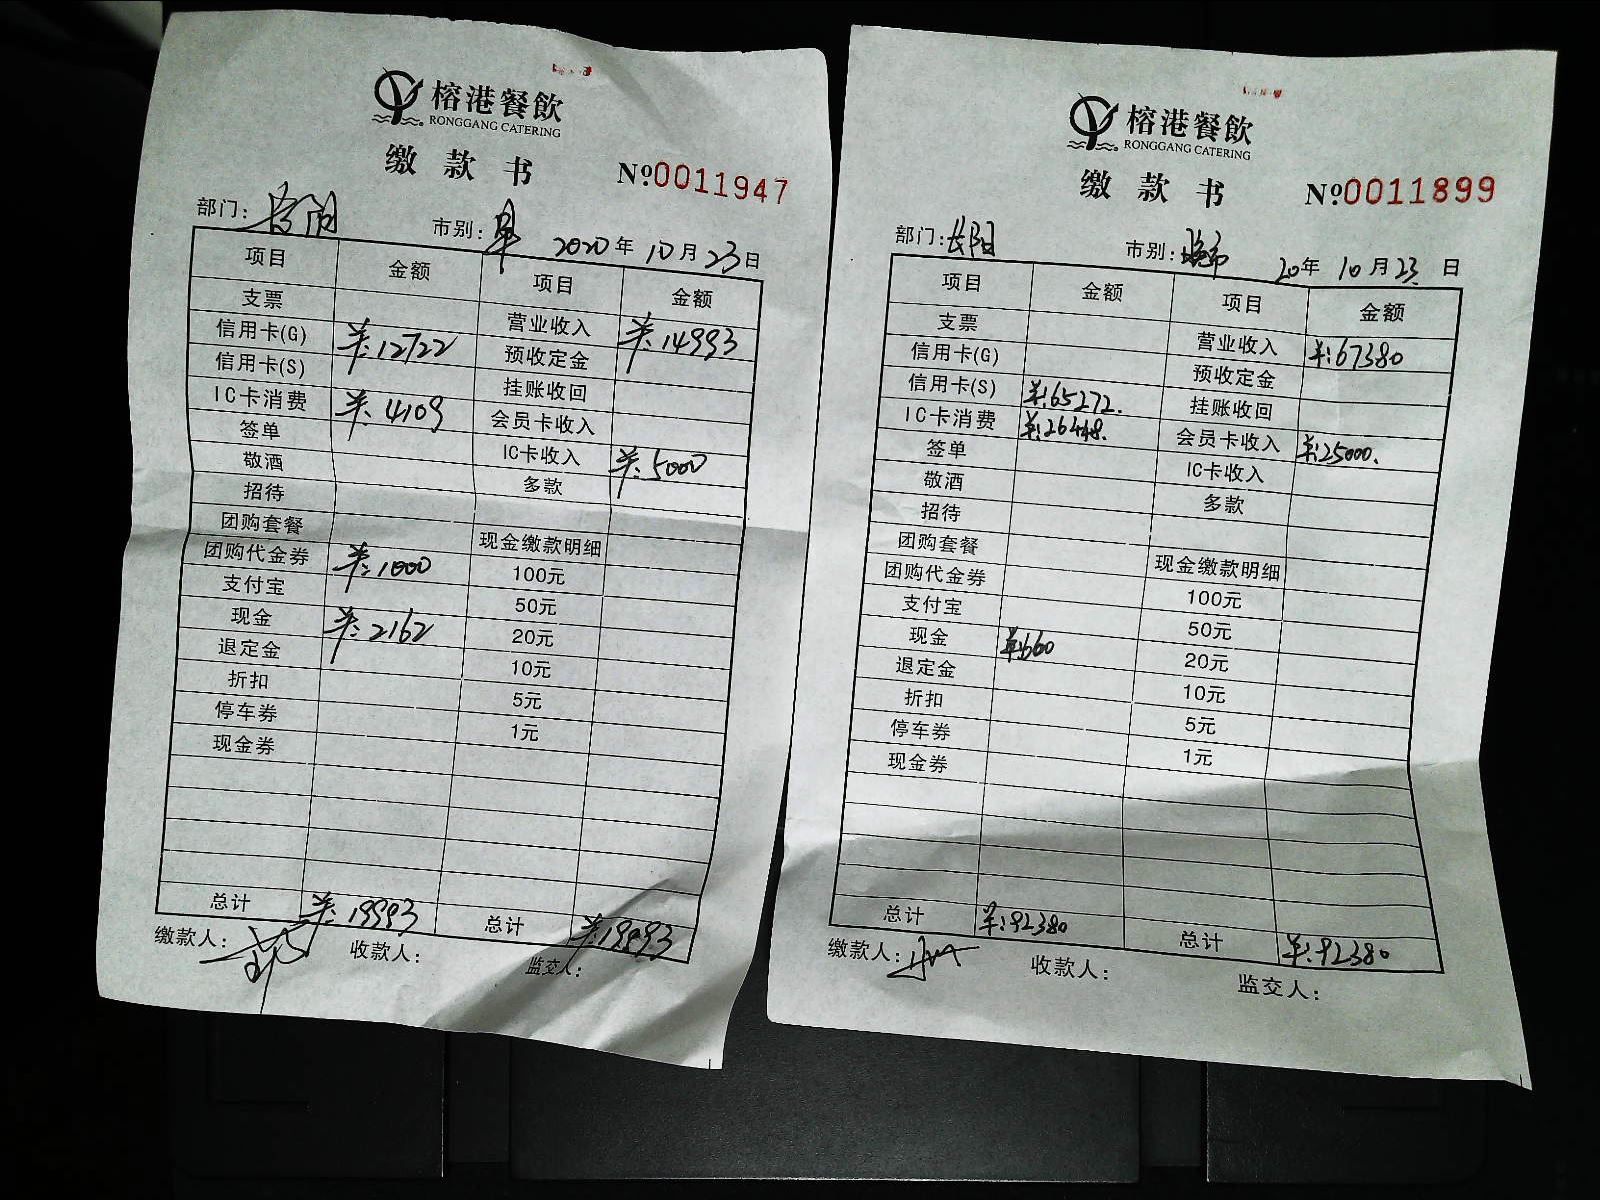 榕港餐飲
RONGGANG CATERING
缴款书 №0011947
部门: 市别: 2020年10月23日
项目 金额 项目 金额
支票 营业收入 ¥:14993
信用卡(G) ¥:12722 预收定金
信用卡(S) 挂账收回
IC卡消费 ¥:4109 会员卡收入
签单 IC卡收入 ¥:5000
敬酒 多款
招待
团购套餐 现金缴款明细
团购代金券 ¥:1000 100元
支付宝 50元
现金 ¥:2162 20元
退定金 10元
折扣 5元
停车券 1元
现金券
总计 ¥:19993 总计 ¥:19993
缴款人: 收款人: 监交人:
榕港餐飲
RONGGANG CATERING
缴款书 №0011899
部门:长阳 市别:晚市 20年10月23日
项目 金额 项目 金额
支票 营业收入 ¥:67380
信用卡(G) 预收定金
信用卡(S) ¥:65272. 挂账收回
IC卡消费 ¥:26448. 会员卡收入 ¥:25000.
签单 IC卡收入
敬酒 多款
招待
团购套餐 现金缴款明细
团购代金券 100元
支付宝 50元
现金 ¥:660 20元
退定金 10元
折扣 5元
停车券 1元
现金券
总计 ¥:92380 总计 ¥:92380
缴款人: 收款人: 监交人: